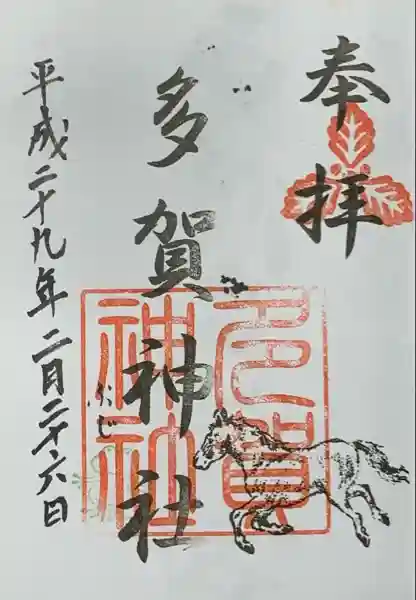 奉拝
多賀神社
平成二十九年二月二十六日
多賀
神社